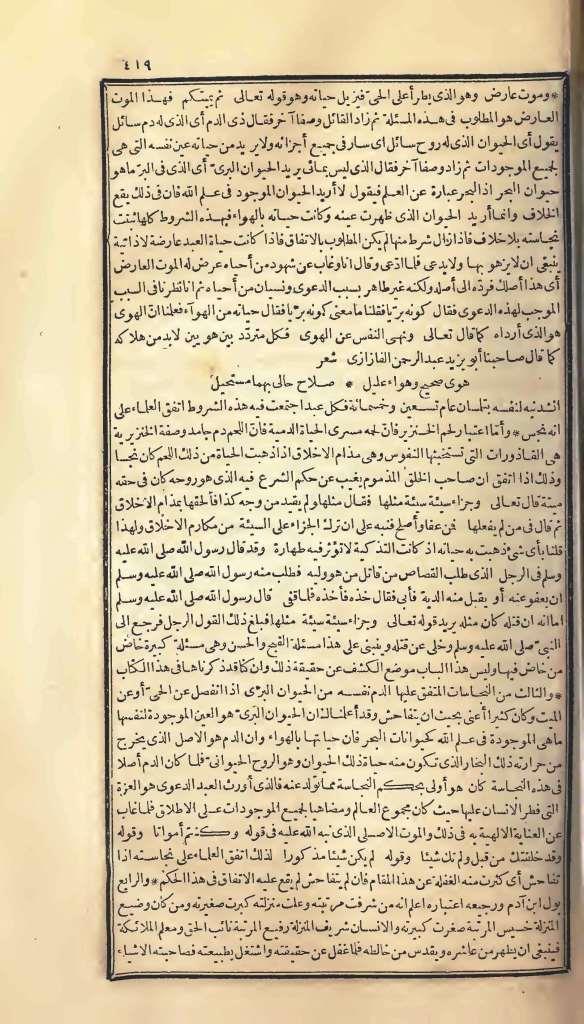 ٤١٩
* وموت عارض وهو الذى يطرأ على الحىّ فيزيل حياته وهو قوله تعالى ثم يميتكم فهذا الموت
العارض هو المطلوب فى هذه المسئلة ثم زاد القائل وصفا آخر فقال ذى الدم أى الذى له دم سائل
يقول أى الحيوان الذى له روح سائل اى سار فى جميع أجزائه ولا يريد من حياته عين نفسه التى هى
لجميع الموجودات ثم زاد وصفا آخر فقال الذى ليس بمائى يريد الحيوان البرىّ أى الذى فى البرّ ما هو
حيوان البحر اذ البحر عبارة عن العلم فيقول لا أريد الحيوان الموجود فى علم الله فان فى ذلك يقع
الخلاف وانما أريد الحيوان الذى ظهرت عينه وكانت حياته بالهواء فبهذه الشروط كلها ثبتت
نجاسته بلا خلاف فاذا زال شرط منها لم يكن المطلوب بالاتفاق فاذا كانت حياة العبد عارضة لا ذاتية
ينبغى ان لا يزهو بها ولا يدعى فلما ادّعى وقال انا وغاب عن شهود من أحياه عرض له الموت العارض
أى هذا أصلك فردّه الى أصله ولكنه غير طاهر بسبب الدعوى ونسيان من أحياه ثم انا نظرنا فى السبب
الموجب لهذه الدعوى فقال كونه بريّا فقلنا ما معنى كونه بريّا فقال حياته من الهوآء فعلنا انّ الهوى
هو الذى أرداه كما قال تعالى ونهى النفس عن الهوى فكل متردّد بين هويين لابد من هلاكه
كما قال صاحبنا أبو يزيد عبد الرحمن الفازازى شعر
هوى صحيح وهواء عليل * صلاح حالى بهما مستحيل
انشدنيه لنفسه بتلمسان عام تسعين وخمسمائة فكل عبد اجتمعت فيه هذه الشروط اتفق العلماء على
انه نجس * وأما اعتبار لحم الخنزير فانّ لحمه مسرى الحياة الدمية فانّ اللحم دم جامد وصفة الخنزيرية
هى القاذورات التى تستخبثها النفوس وهى مذام الاخلاق اذا ذهبت الحياة من ذلك اللحم كان نجسا
وذلك اذا اتفق ان صاحب الخلق المذموم يغيب عن حكم الشرع فيه الذى هو روحه كان فى حقه
ميتة قال تعالى وجزاء سيئة سيئة مثلها فقال مثلها ولم يقيد من وجه كذا فألحقها بمذام الاخلاق
ثم قال فى من لم يفعلها فمن عفا وأصلح فنبه على ان ترك الجزاء على السيئة من مكارم الاخلاق ولهذا
قلنا بأى شىء ذهبت به حياته اذ كانت التذكية لا تؤثر فيه طهارة وقد قال رسول الله صلى الله عليه
وسلم فى الرجل الذى طلب القصاص من قاتل من هو وليه فطلب منه رسول الله صلى الله عليه وسلم
ان يعفو عنه أو يقبل منه الدية فأبى فقال خذه فأخذه فلما قفى قال رسول الله صلى الله عليه وسلم
اما انه ان قتله كان مثله يريد قوله تعالى وجزاء سيئة سيئة مثلها فبلغ ذلك القول الرجل فرجع الى
النبىّ صلى الله عليه وسلم وخلى عن قتله وينبنى على هذا مسئلة القبح والحسن وهى مسئلة كبيرة خاض
من خاض فيها وليس هذا الباب موضع الكشف عن حقيقة ذلك وان كنا قد ذكرناها فى هذا الكتاب
* والثالث من النجاسات المتفق عليها الدم نفسه من الحيوان البرّى اذا انفصل عن الحى أو عن
الميت وكان كثيرا أعنى بحيث ان يتفاحش وقد أعلمناك ان الحيوان البرىّ هو العين الموجودة لنفسها
ما هى الموجودة فى علم الله كحيوانات البحر فان حياتها بالهواء وان الدم هو الاصل الذى يخرج
من حرارته ذلك البخار الذى تكون منه حياة ذلك الحيوان وهو الروح الحيوانى فلما كان الدم أصلا
فى هذه النجاسة كان هو أولى بحكم النجاسة مما تولد عنه فالذى أورث العبد الدعوى هو العزة
التى فطر الانسان عليها حيث كان مجموع العالم ومضاهيا لجميع الموجودات على الاطلاق فلما غاب
عن العناية الالهية به فى ذلك والموت الاصلى الذى نبه الله عليه فى قوله وكنتم أمواتا وقوله
وقد خلقتك من قبل ولم تك شيئا وقوله لم يكن شيئا مذكورا لذلك اتفق العلماء على نجاسته اذا
تفاحش أى كثرت منه الغفلة عن هذا المقام فان لم يتفاحش لم يقع عليه الاتفاق فى هذا الحكم * والرابع
بول ابن آدم ورجيعه اعتباره اعلم انه من شرفت مرتبته وعلت منزلته كبرت صغيرته ومن كان وضيع
المنزلة خسيس المرتبة صغرت كبيرته والانسان شريف المنزلة رفيع المرتبة نائب الحق ومعلم الملائكة
فينبغى ان يطهر من عاشره ويقدس من خالطه فلما غفل عن حقيقته واشتغل بطبيعته فصاحبته الاشياء